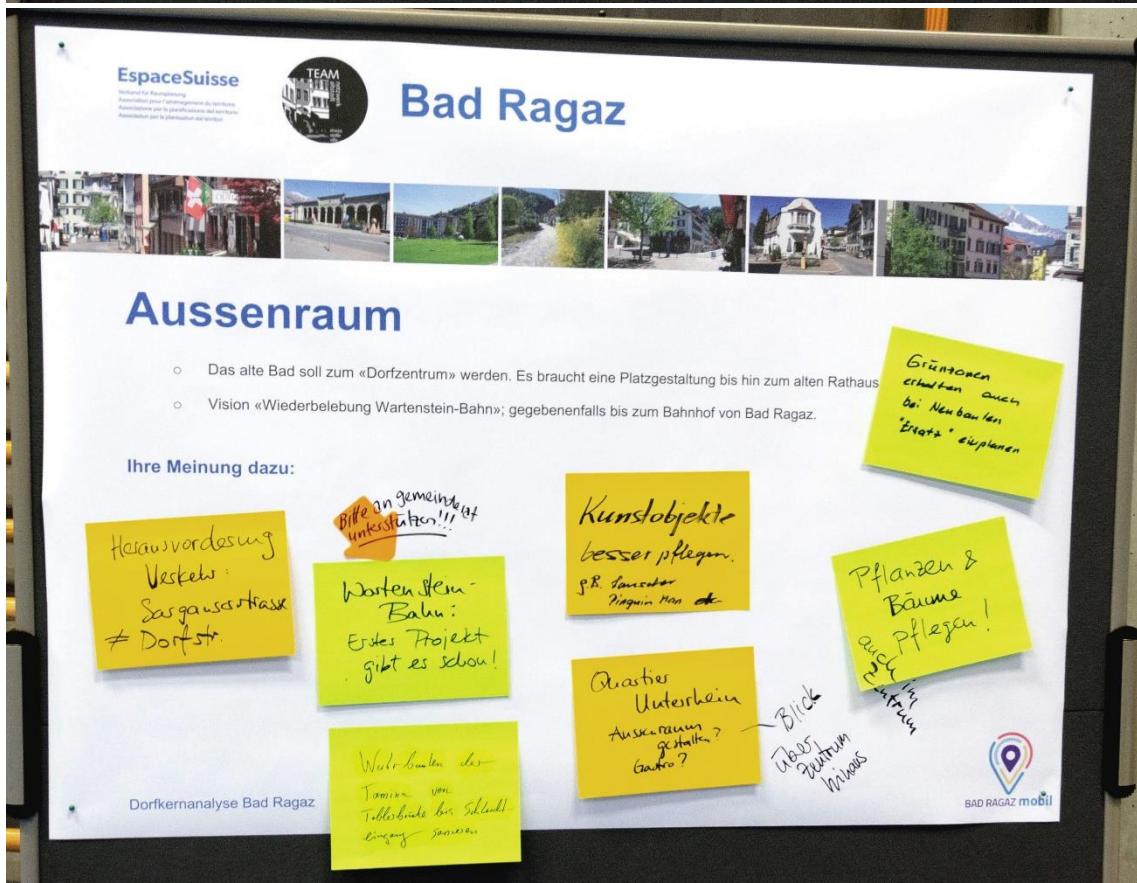 EspaceSuisse
Verband für Raumplanung
Association pour l'aménagement du territoire
Associazione per la pianificazione del territorio
Associaziun per la planisaziun dal territori
TEAM
netzwerk
altstadt
Bad Ragaz
Aussenraum
Das alte Bad soll zum «Dorfzentrum» werden. Es braucht eine Platzgestaltung bis hin zum alten Rathaus
Vision «Wiederbelebung Wartenstein-Bahn»; gegebenenfalls bis zum Bahnhof von Bad Ragaz.
Grünzonen
erhalten auch
bei Neubauten
"Ersatz" einplanen
Ihre Meinung dazu:
Herausvorderung
Verkehr:
Sarganserstrasse
≠ Dorfstr.
Bitte an gemeinderat
unterstützen!!!
Wartenstein-
Bahn:
Erstes Projekt
gibt es schon!
Kunstobjekte
besser pflegen.
z.B. Lauscher
Pinguin Man etc
Pflanzen &
Bäume
pflegen!
auch im
Zentrum
Quartier
Unterrhein
Aussenraum
gestalten?
Gastro?
Blick
über
Zentrum
hinaus
Wuhrbauten der
Tamina von
bis Schlucht-
eingang sanieren
Dorfkernanalyse Bad Ragaz
BAD RAGAZ mobil